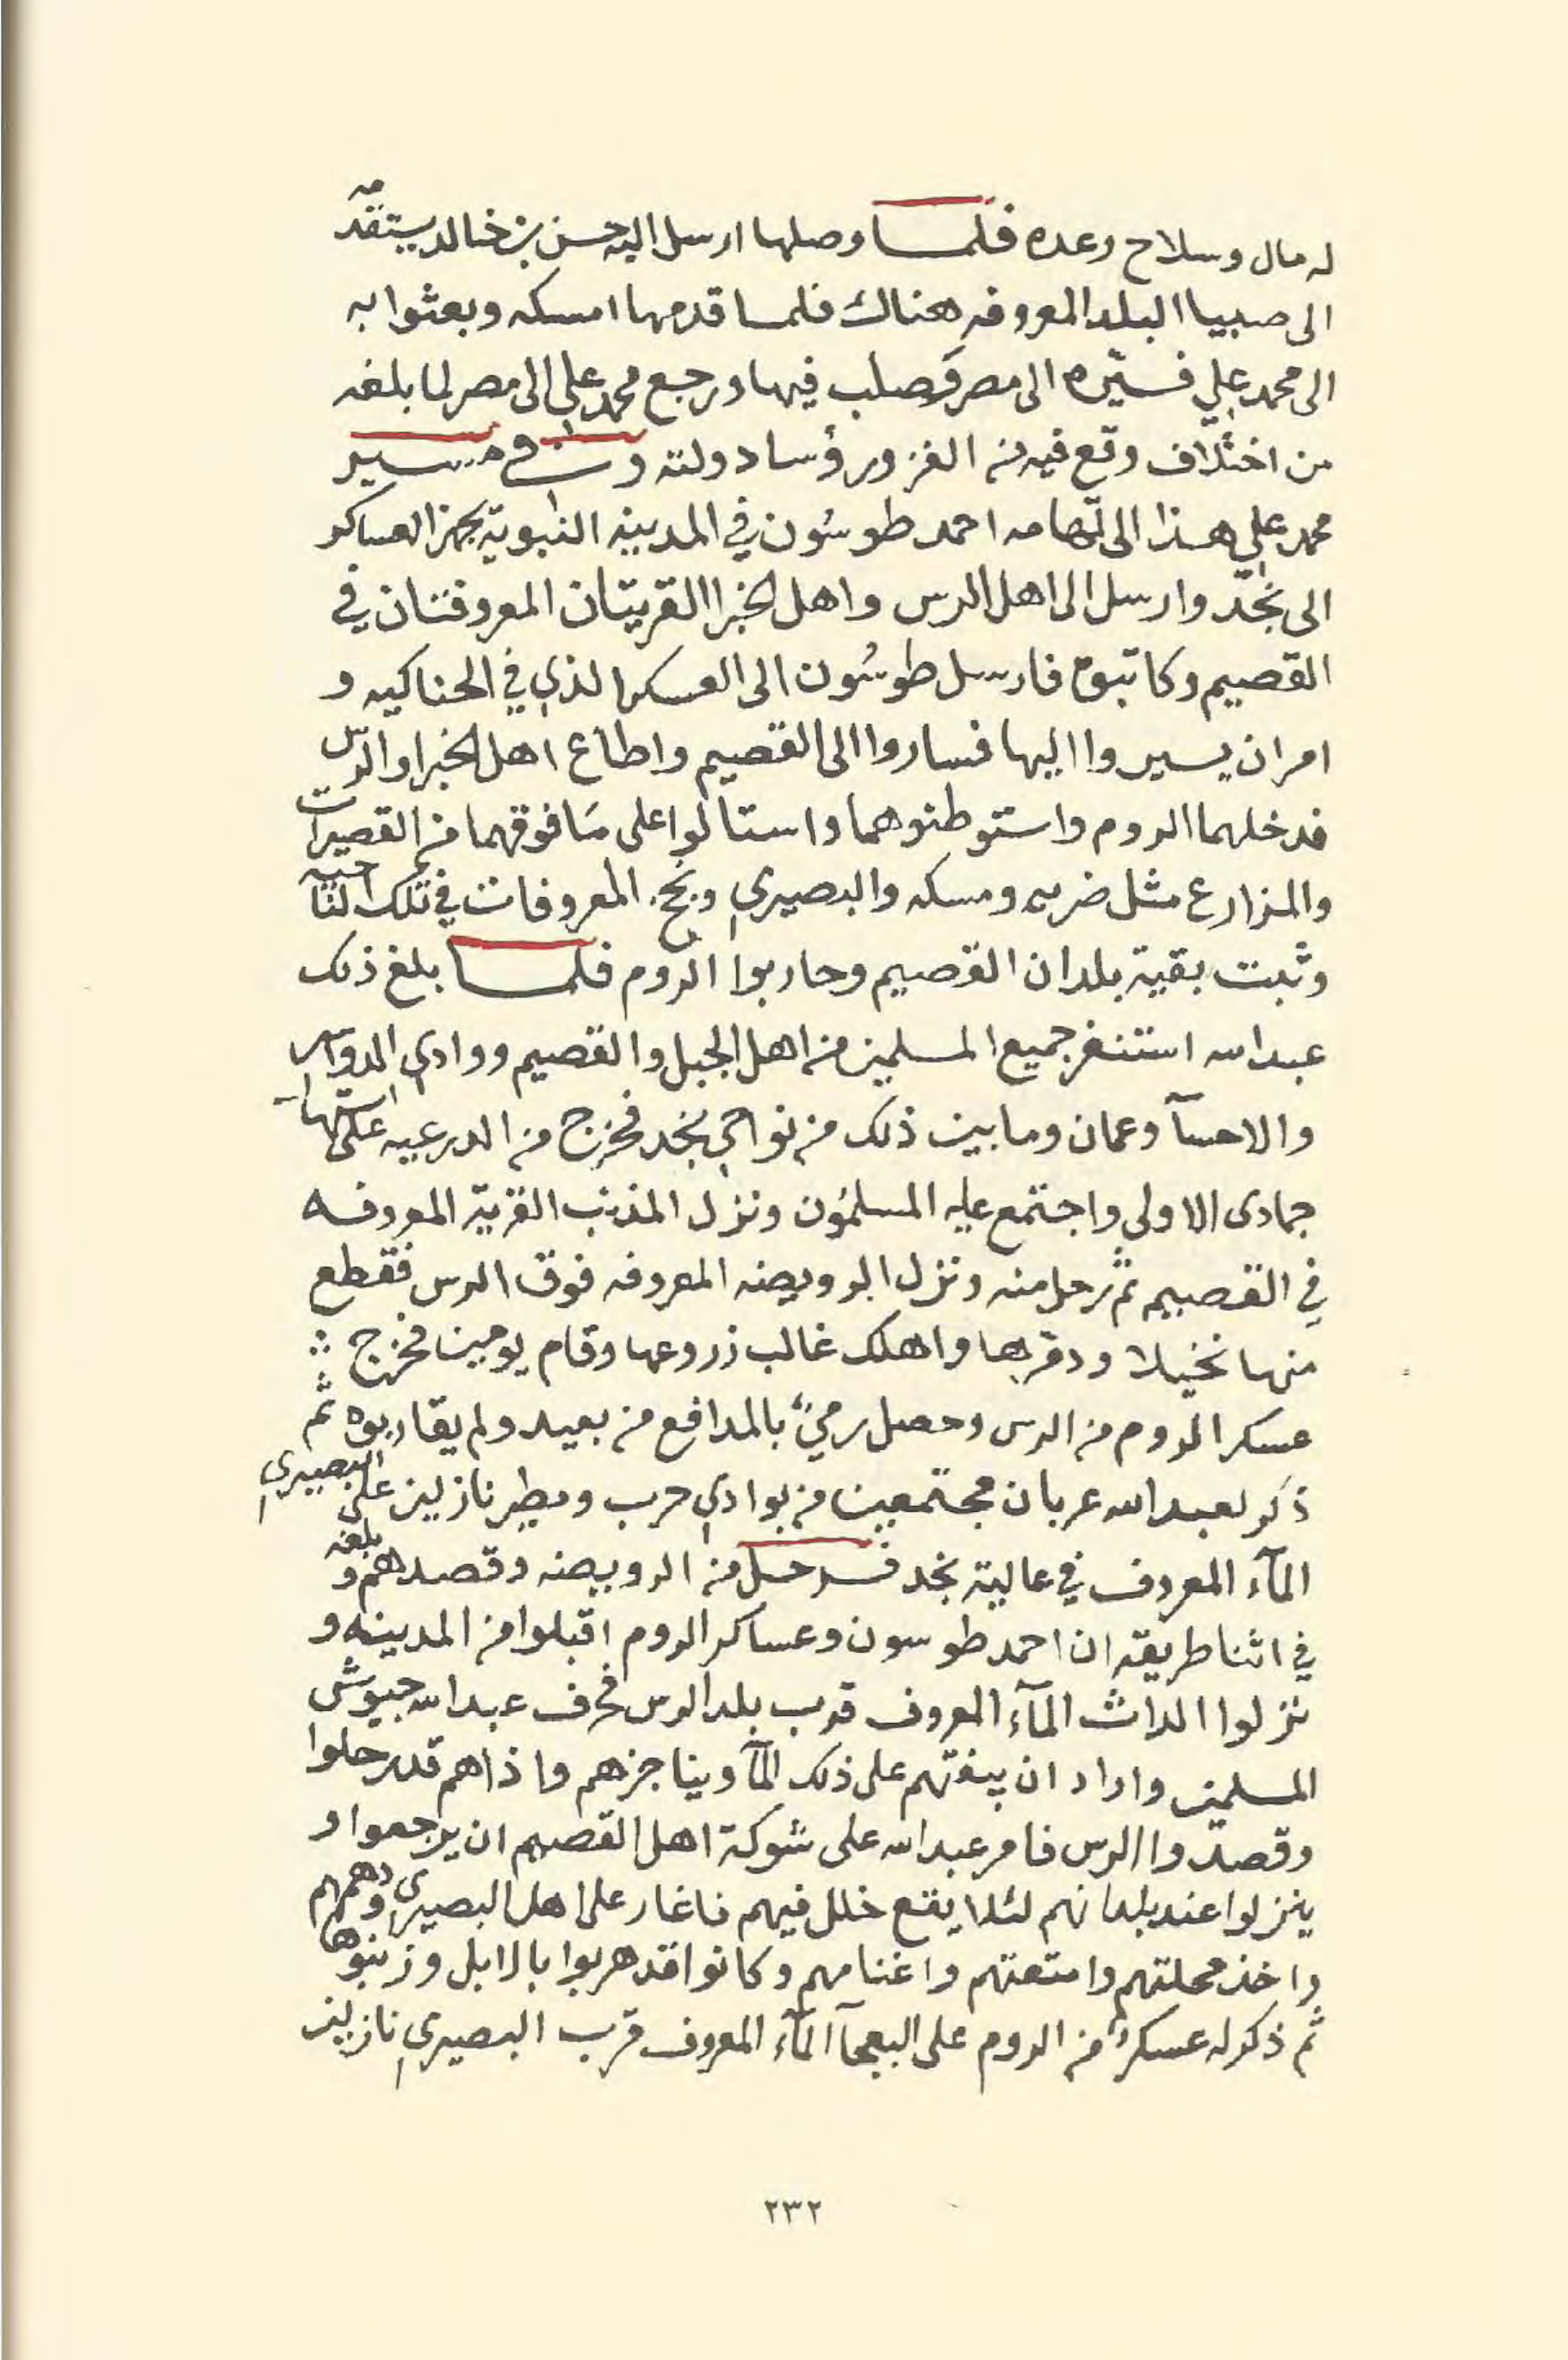 له مال وسلاح وعده فلما وصلها ارسل اليه حسن بن خالد يستقدمه
الى صبيا البلد المعروفه هناك فلما قدمها امسكه وبعثوا به
الى محمد علي فسيّره الى مصر وَصلب فيها ورجع محمد علي الى مصر لما بلغه
من اختلاف وقع فيه من الغز ورؤسا دولته وفي مسير
محمد علي هذا الى تهامه احمد طوسُون في المدينه النبويّة يجهز العساكر
الى نجد وارسل الى اهل الرس واهل الخبرا القريتان المعروفتان في
القصيم وكاتبوه فارسل طوسُون الى العسكر الذي في الحناكيه و
امر ان يسيروا اليها فساروا الى القصيم واطاع اهل الخبرا والرّس
فدخلهما الروم واستوطنوهما واستالوا على مَا فوقهما من القصيرات
والمزارع مثل ضريه ومسكه والبصيري ونجخ المعروفات في تلك النّاحيه
وثبت بقية بلدان القصيم وحاربوا الروم فلما بلغ ذلك
عبدالله استنفر جميع المسلمين من اهل الجبل والقصيم ووادي الدواسر
والاحسآ وعمان وما بين ذلك من نواحي نجد فخرج من الدرعيه على استهال
جمادى الاولى واجتمع عليه المسلمُون ونزل المذنب القريّة المعروفه
في القصيم ثم رحل منه ونزل الرويضه المعروفه فوق الرس فقطع
منها نخيلا ودمرها واهلك غالب زروعها وقام يومين فخرج
عسكر الروم من الرس وحصل رميٌ بالمدافع من بعيد ولم يقاربوه ثم
ذكر لعبدالله عربان مجتمعين من بوادي حرب ومطير نازلين على البصيري
المآء المعروف في عالية نجد فرحل من الرويضه وقصدهم وبلغه
في اثنا طريقه ان احمد طوسون وعساكر الروم اقبلوا من المدينه و
نزلوا الداث المآء المعروف قرب بلد الرس فحرف عبدالله جيوش
المسلمين واراد ان يبغتهم على ذلك المآ ويناجزهم واذا هم قد رحلوا
وقصدوا الرس فامر عبدالله على شوكة اهل القصيم ان يرجعوا و
ينزلوا عند بلدانهم لئلا يقع خلل فيهم فاغار على اهل البصيري ودهمهم
واخذ محلتهم وامتعتهم واغنامهم وكانوا قد هربوا بالابل وزبنوها
ثم ذكر له عسكرٌ من الروم على البعجآ المآء المعروف قرب البصيري نازلين
٢٣٢